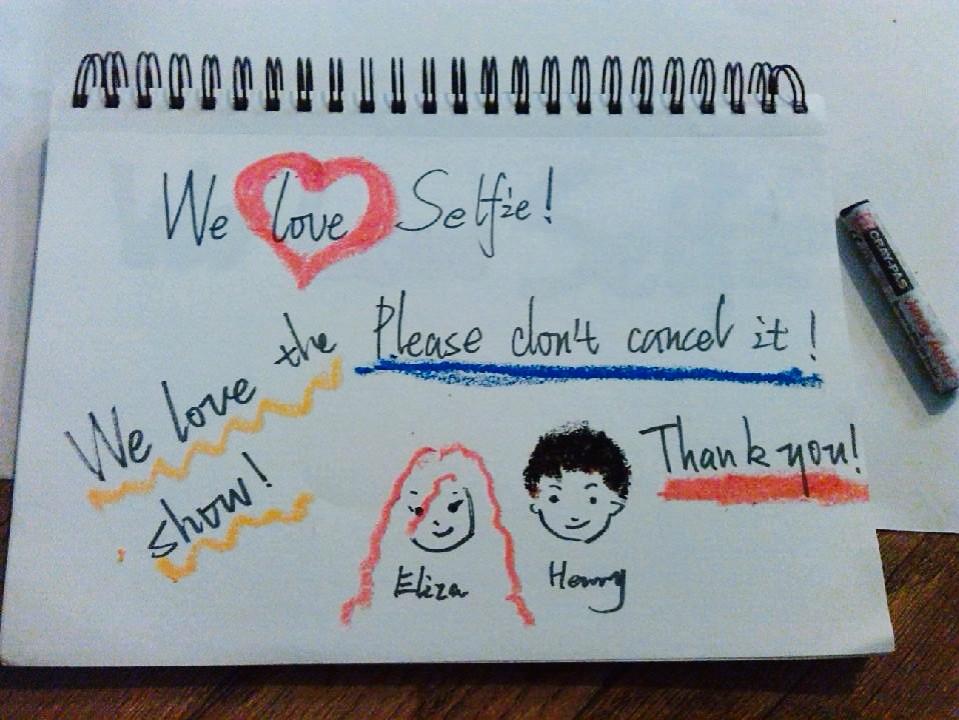 We love Selfie!
Please don't cancel it!
We love the
show!
Thank you!
Eliza
Henry
CRAY-PAS